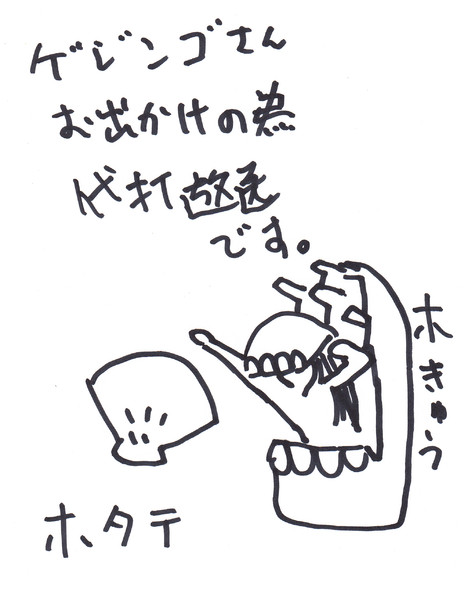 ゲジンゴさん
お出かけの為
代打放送
です。
ホきゅう
ホタテ